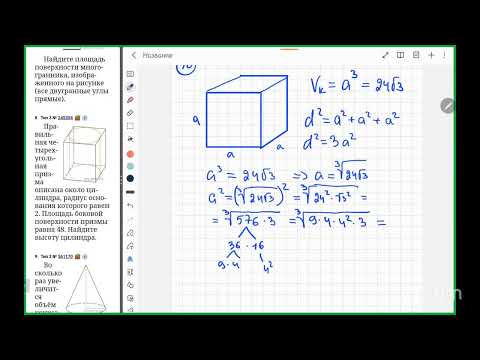 Найдите площадь
поверхности много-
гранника, изобра-
женного на рисунке
(все двугранные углы
прямые).
8 Тип 3 №
Пра-
виль-
ная че-
тырех-
уголь-
ная
приз-
ма
описана около ци-
линдра, радиус осно-
вания которого равен
2. Площадь боковой
поверхности призмы
равна 48. Найдите
высоту цилиндра.
9 Тип 3 №
Во
сколько
раз уве-
личит-
ся
объём
Название
a
a
a
Vк = a³ = 24√3
d² = a² + a² + a²
d² = 3a²
a³ = 24√3 ⇒ a = ∛24√3
a² = (∛24√3)² = ∛24²·√3² =
= ∛576·3 = ∛9·4·4²·3 =
36 · 16
9·4 4²